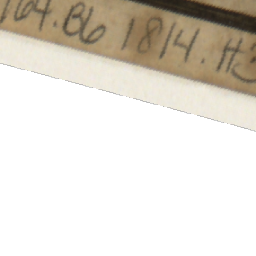 164.B6 1814.H3